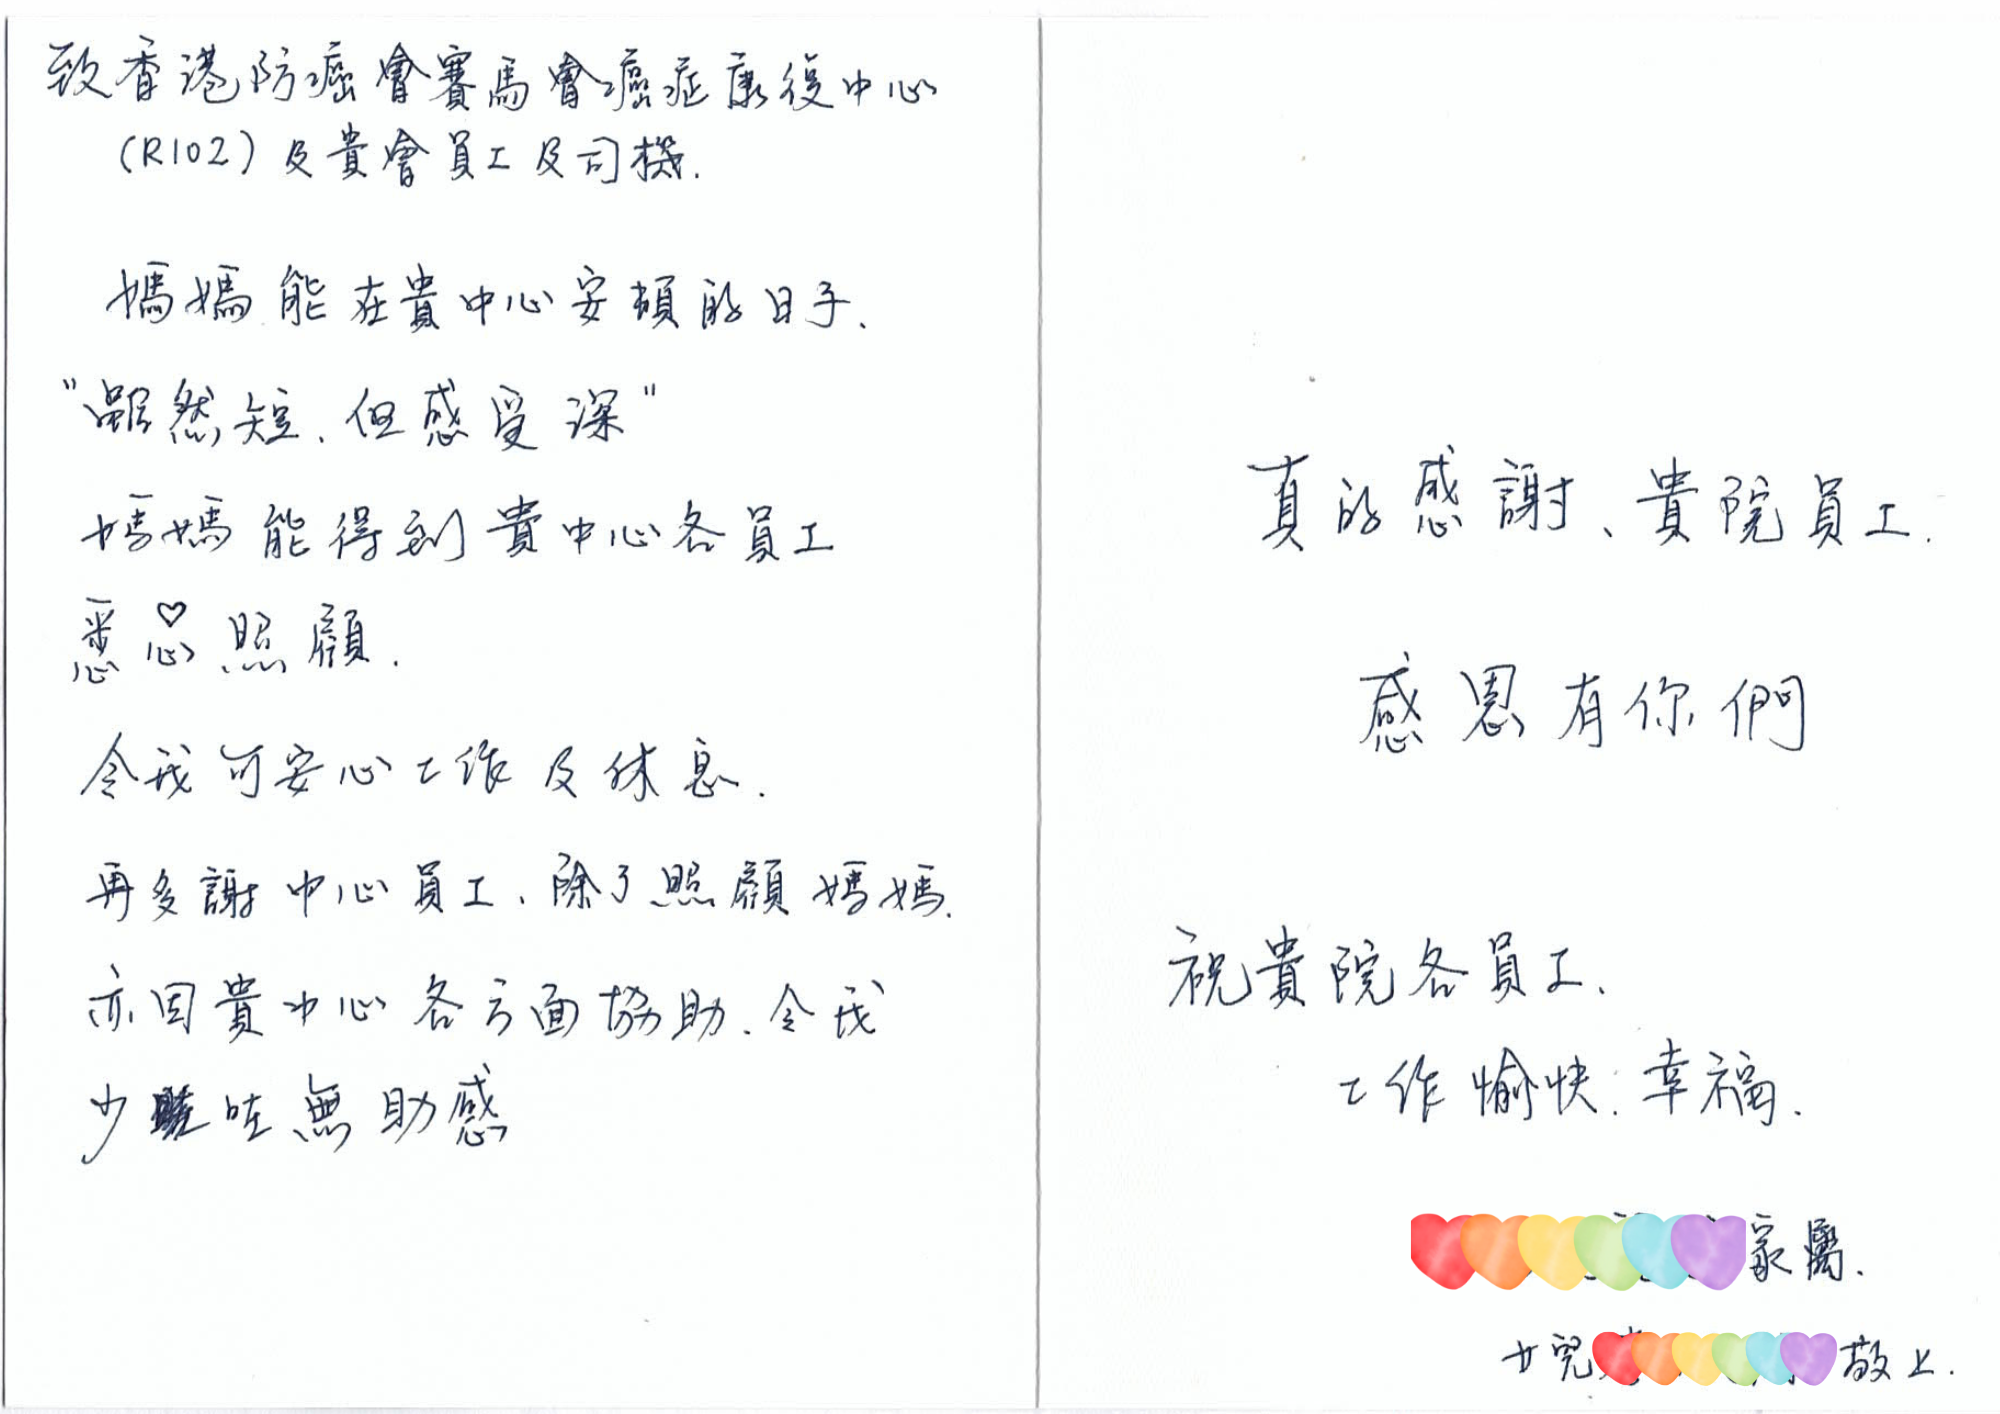 致香港防癌會賽馬會癌症康復中心
(R102)及貴會員工及司機.
媽媽能在貴中心安頓的日子.
"雖然短,但感受深"
媽媽能得到貴中心各員工
悉心♡照顧.
令我可安心工作及休息.
再多謝中心員工,除了照顧媽媽.
亦因貴中心各方面協助.令我
少咗無助感
真的感謝、貴院員工.
感恩有你們
祝貴院各員工.
工作愉快.幸福.
家屬.
女兒
敬上.